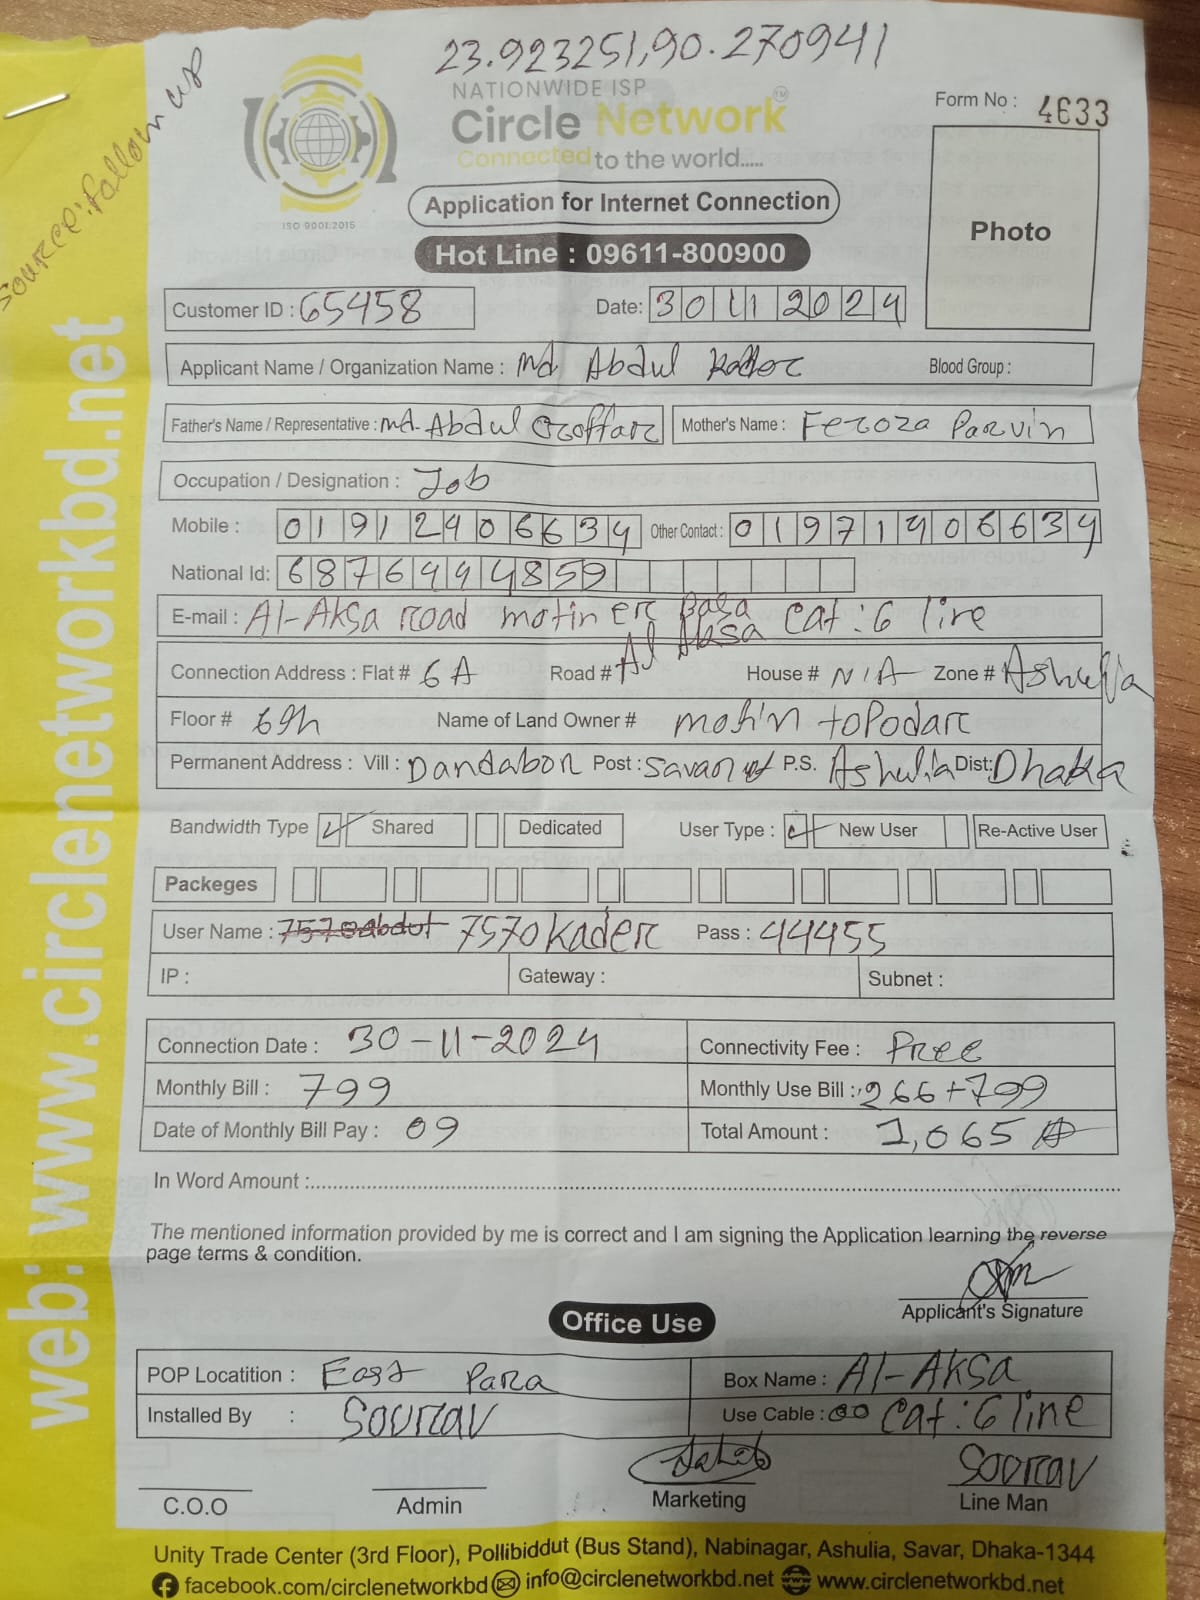 23.923251,90.270941
Source: Follow up
NATIONWIDE ISP
Circle Network TM
Connected to the world.....
ISO 9001:2015
Form No : 4633
Photo
Application for Internet Connection
Hot Line : 09611-800900
Customer ID : 65458 Date: 30 11 2024
Applicant Name / Organization Name : Md Abdul Kader Blood Group :
Father's Name / Representative : Md. Abdul Goffar Mother's Name : Feroza Parvin
Occupation / Designation : Job
Mobile : 01912406634 Other Contact : 01971406634
National Id: 6876444859
E-mail : Al-Aksa road motin er basa cat : 6 line
Connection Address : Flat # 6A Road # Al Aksa House # N/A Zone # Ashulia
Floor # 6th Name of Land Owner # motin toPodar
Permanent Address : Vill : Dandabor Post : Savar P.S. Ashulia Dist: Dhaka
Bandwidth Type Shared Dedicated User Type : New User Re-Active User
Packeges
User Name : 7570abdul 7570kader Pass : 44455
IP : Gateway : Subnet :
Connection Date : 30-11-2024 Connectivity Fee : Free
Monthly Bill : 799 Monthly Use Bill : 266+799
Date of Monthly Bill Pay : 09 Total Amount : 1,065
In Word Amount :
The mentioned information provided by me is correct and I am signing the Application learning the reverse
page terms & condition.
Applicant's Signature
Office Use
POP Locatition : East Para Box Name : Al-Aksa
Installed By : Sourav Use Cable : Cat : 6 line
Sourav
C.O.O Admin Marketing Line Man
Unity Trade Center (3rd Floor), Pollibiddut (Bus Stand), Nabinagar, Ashulia, Savar, Dhaka-1344
facebook.com/circlenetworkbd info@circlenetworkbd.net www.circlenetworkbd.net
web: www.circlenetworkbd.net